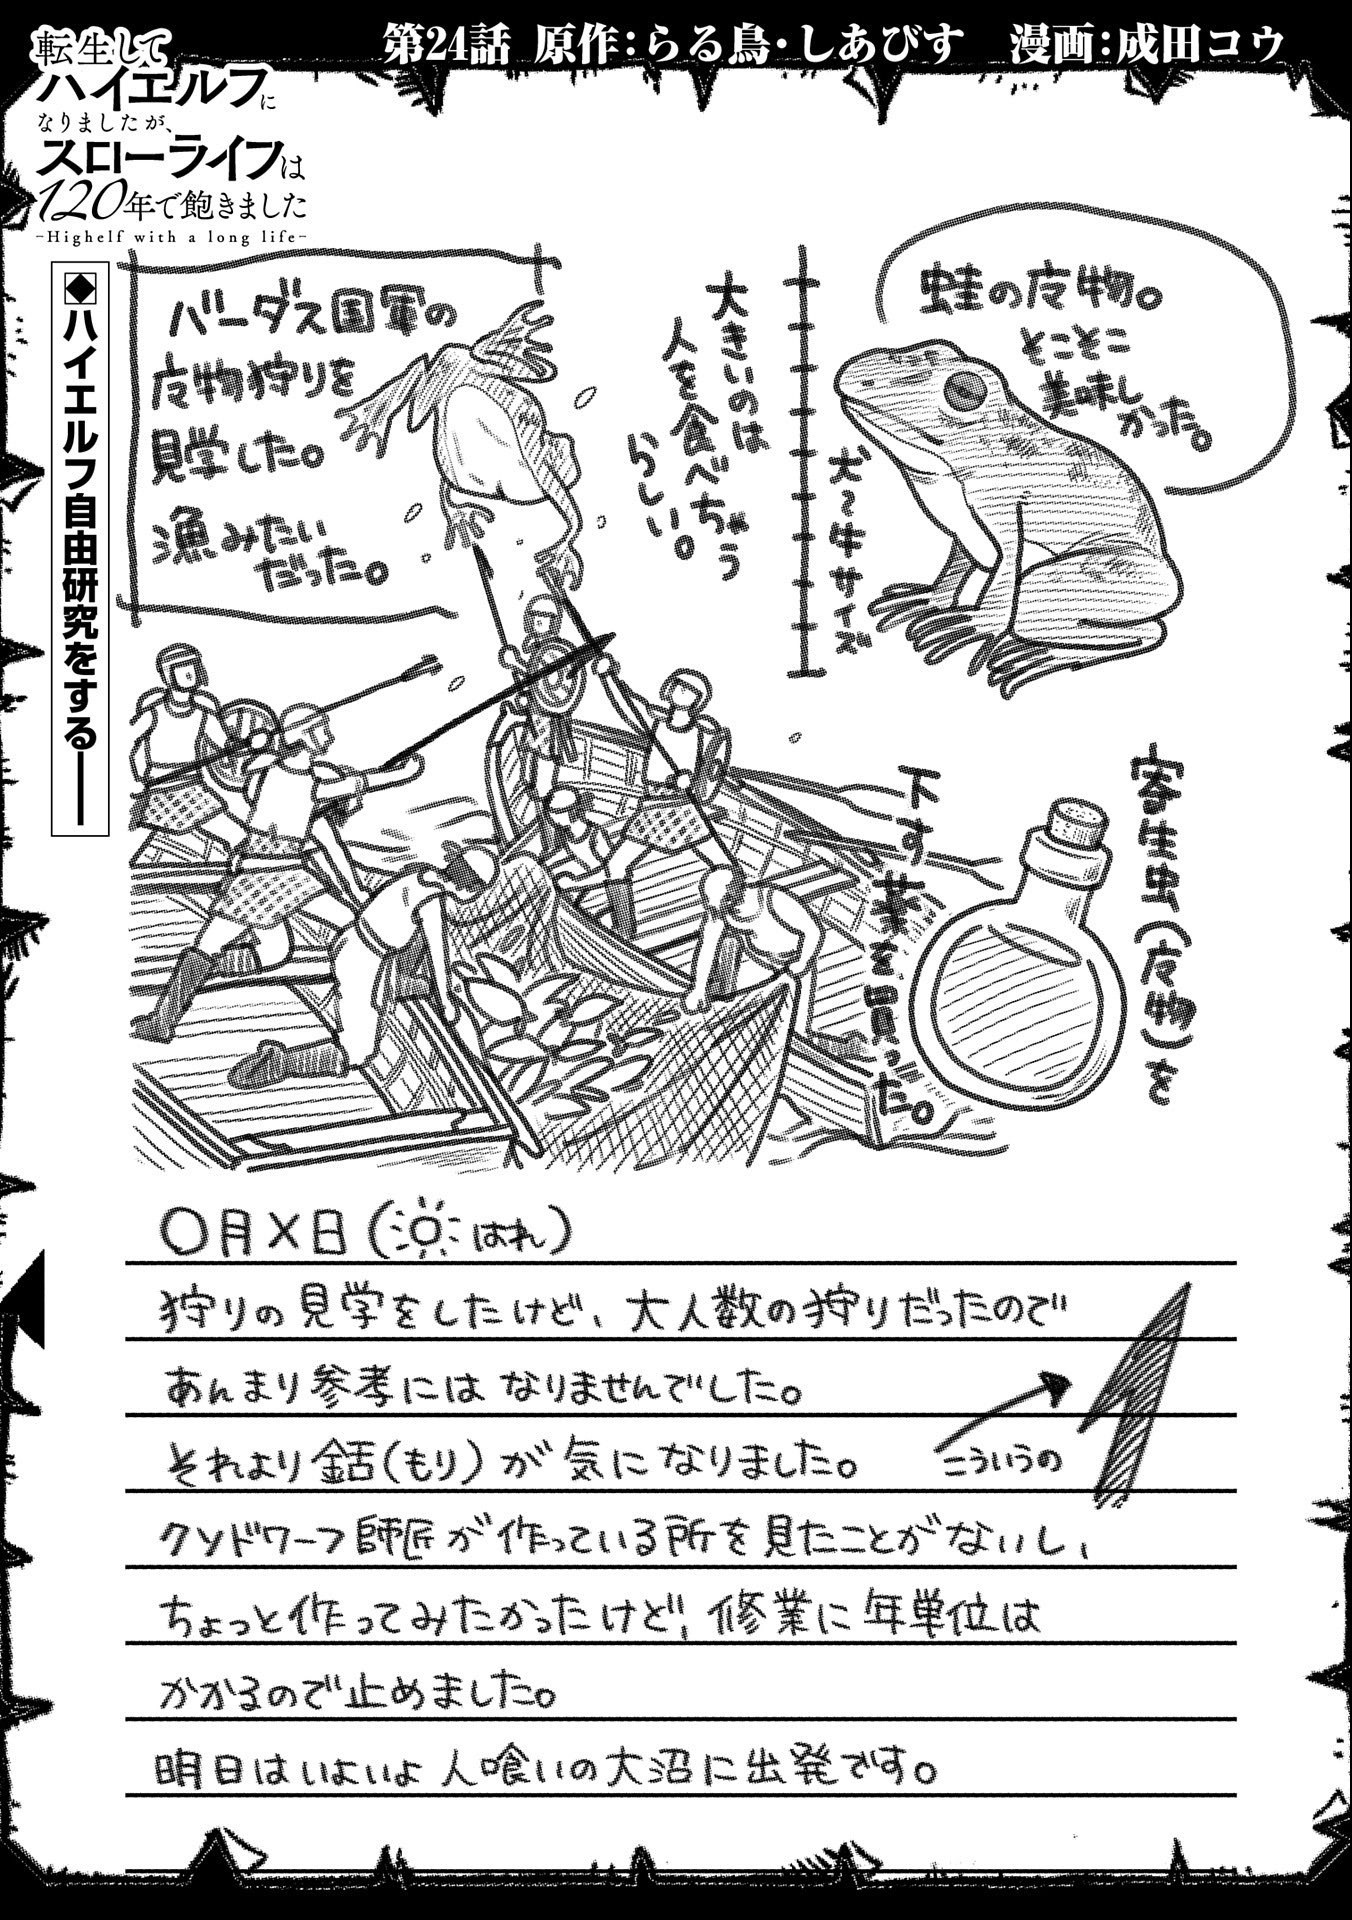 第24話 原作：らる鳥・しあびす 漫画：成田コウ
転生して
ハイエルフに
なりましたが、
スローライフは
120年で飽きました
-Highelf with a long life-
◆ハイエルフ自由研究をする――
蛙の皮物。
とことこ
美味し
かった。
犬〜牛サイズ
大きいのは
人を食べちゃう
らしい。
バーダス国軍の
皮物狩りを
見学した。
漁みたい
だった。
寄生虫(皮物)を
下す薬を買った。
〇月×日(はれ)
狩りの見学をしたけど、大人数の狩りだったので
あんまり参考にはなりませんでした。
それより銛(もり)が気になりました。
こういうの
クソドワーフ師匠が作っている所を見たことがないし、
ちょっと作ってみたかったけど、修業に年単位は
かかるので止めました。
明日はいよいよ人喰いの大沼に出発です。